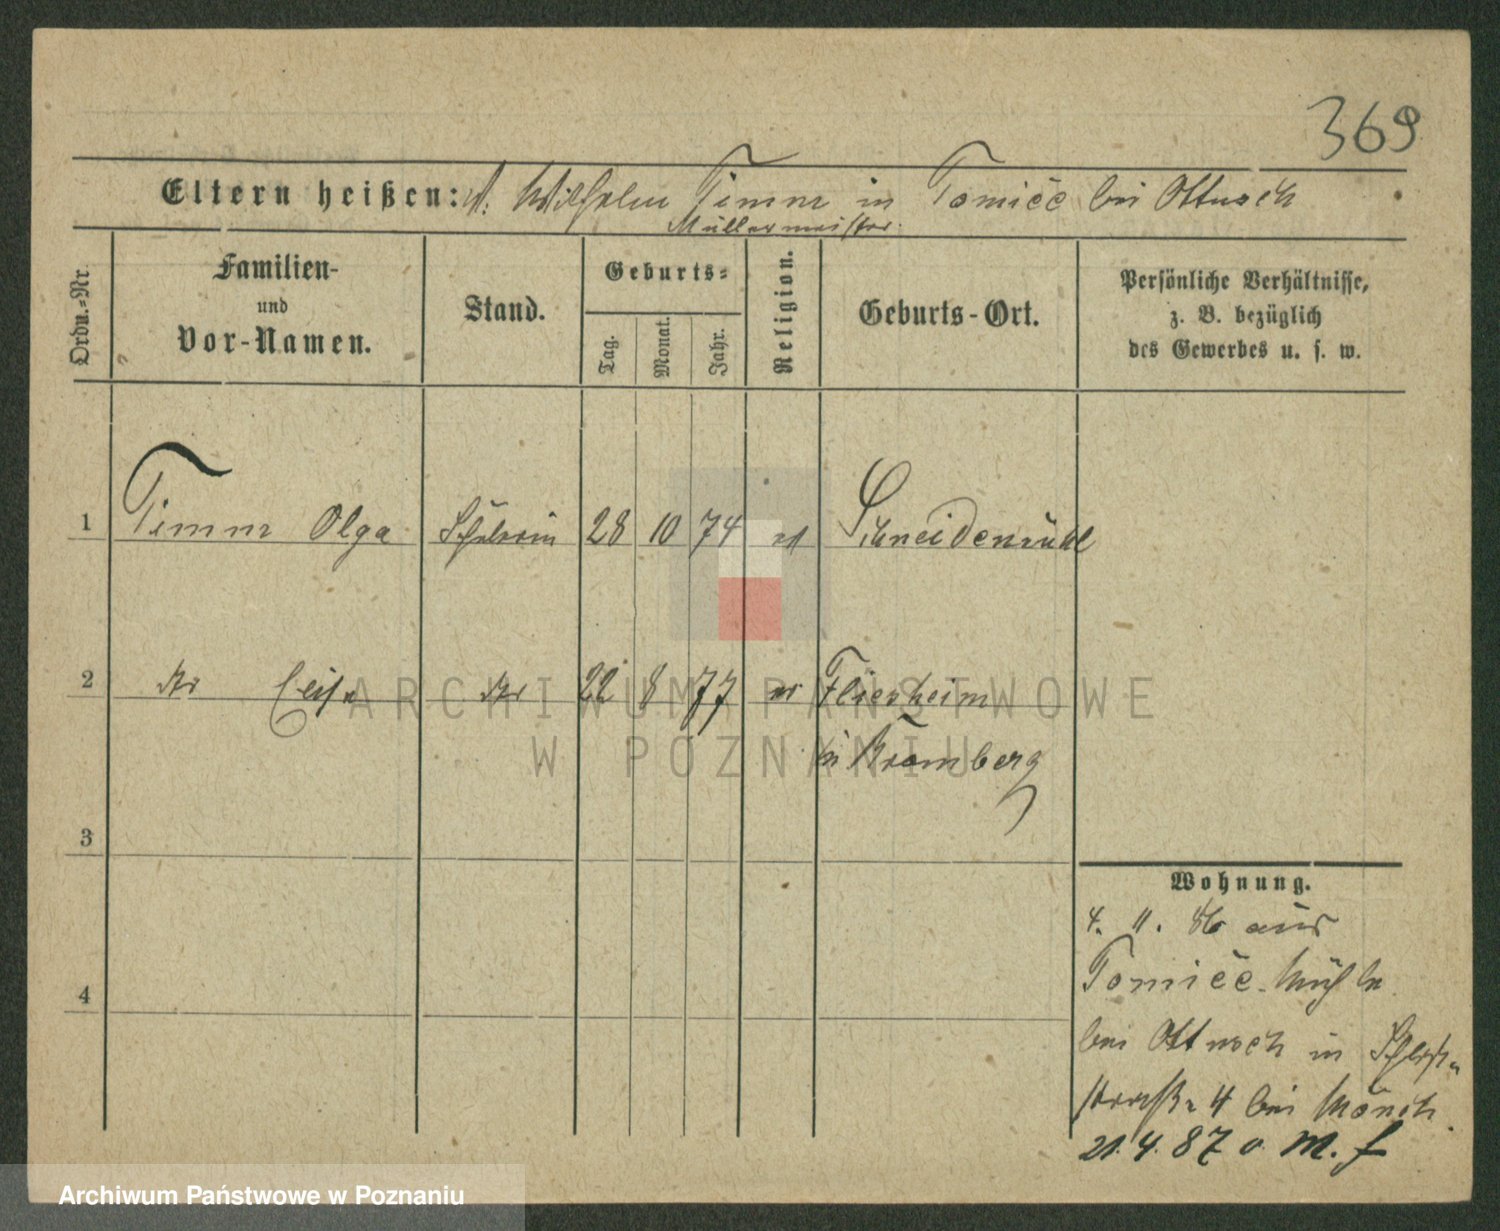 369
Eltern heißen: A. Wilhelm Timm in Tomice bei Ottusch
Müllermeister.
Ordn.-Nr.
Familien-
und
Vor-Namen.
Stand.
Geburts-
Tag.
Monat.
Jahr.
Religion.
Geburts-Ort.
Persönliche Verhältnisse,
z. B. bezüglich
des Gewerbes u. s. w.
1 Timm Olga Schülerin 28 10 74 Schneidemühl
2 22 8 77 Flierheim
Bromberg
3
4
Wohnung.
4. 11. 86 aus
Tomice-Mühle
bei Ottusch in
straße 4 bei Mönch.
21. 4. 87
ARCHIWUM PAŃSTWOWE
W POZNANIU
Archiwum Państwowe w Poznaniu